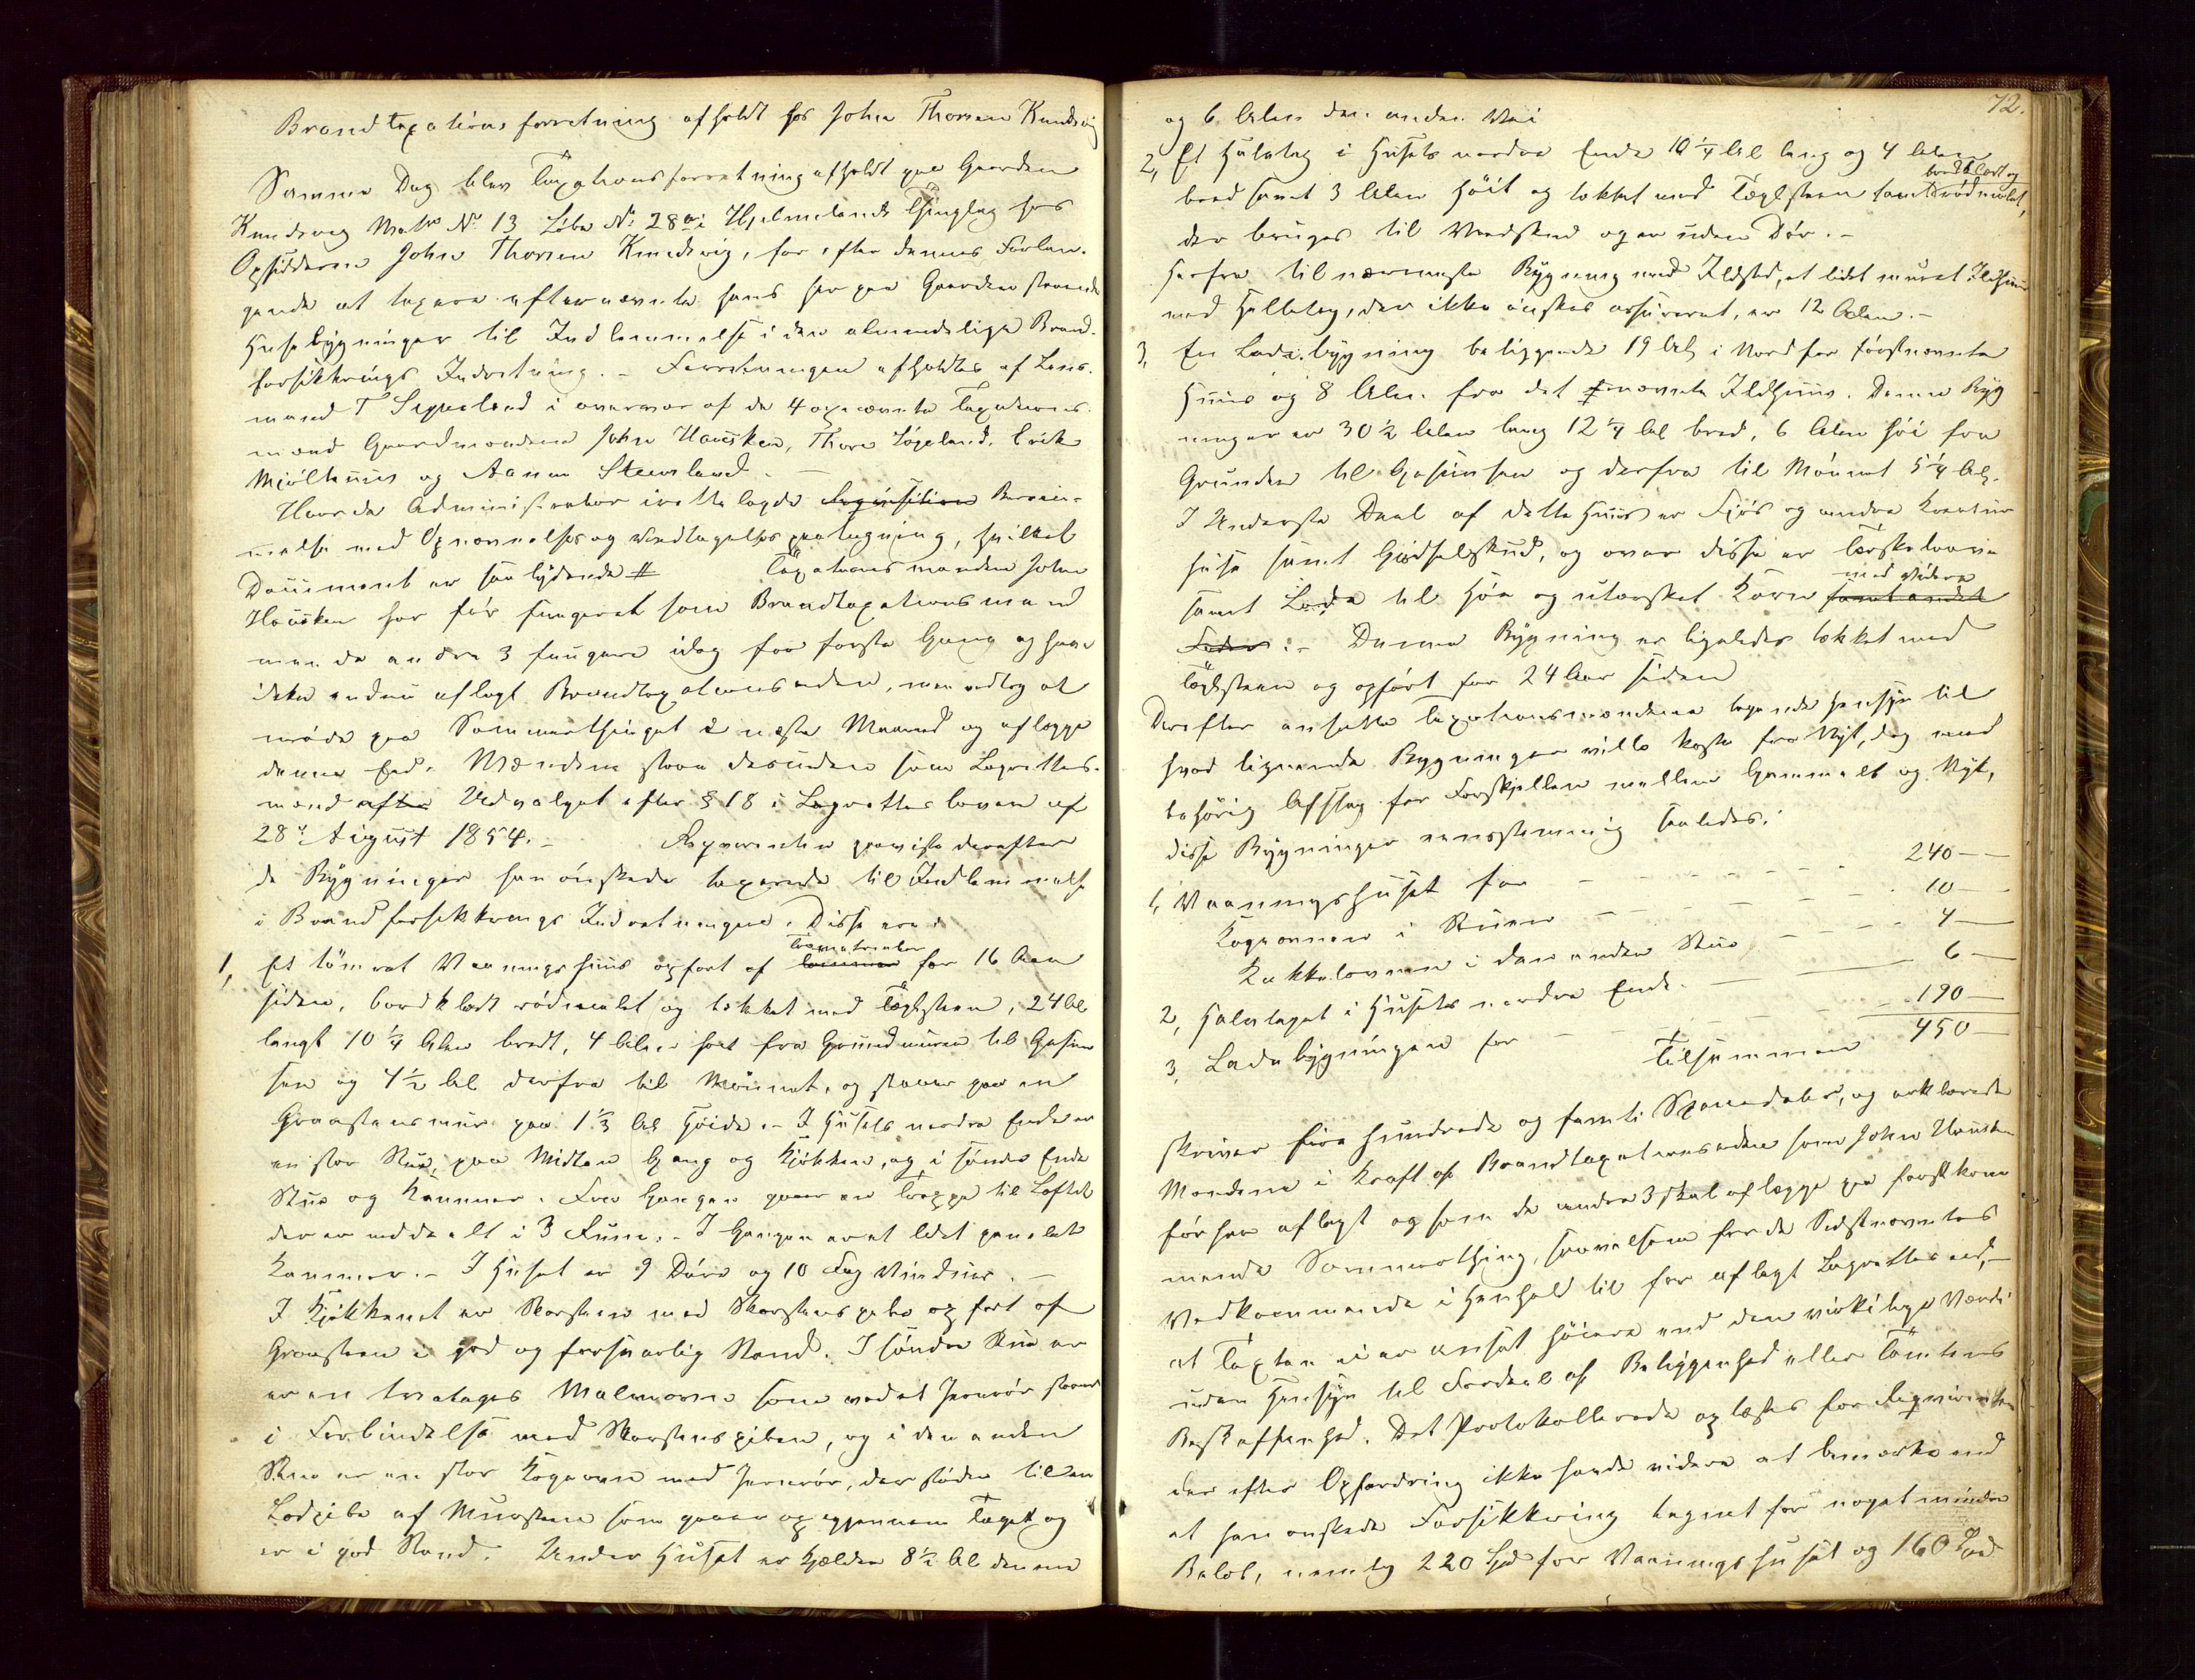 Brandtaxationsforretning afholdt hos John Thorsen Kundsvig
Samme Dag blev Taxationsforretning afholdt paa Gaarden
Kundsvig Matr No 13 Løbe No 28a i Hjelmelands Thinglag hos
Opsidderen John Thorsen Kundsvig, for efter dennes Forlan-
gende at taxere efternævnte hans her paa Gaarden staaende
Husebygninger til Indlemmelse i den almindelige Brand-
forsikkrings Indretning. - Forretningen afholdtes af Lens-
mand T Sigveland i overvær af de 4 opnævnte Taxations-
mænd Gaardmændene John Hausken, Thore Løgeland, Erik
Mjølhuus og Aanen Steensland. -
Hvor da Administrator irettelagde Reqvisition Beram-
melse med Opnævnelses og Vedtagelses paategning, hvilket
Document er saalydende # Taxationsmanden John
Hausken har før fungeret som Brandtaxationsmand
men de andre 3 fungere idag for første Gang og have
ikke endnu aflagt Brandtaxationseden, men vedtog at
møde paa Sommerthinget i næste Maaned og aflægge
denne Eed. Mændene staae desuden som Lagrettes-
mænd efter Udvalget efter § 18 i Lagrettesloven af
28de August 1854. - Reqvirenten paaviste derefter
de Bygninger han ønskede taxerede til Indlemmelse
i Brandforsikkrings Indretningen. Disse ere:
1, Et tømret Vaaningshuus opført af Tømmer for 16 Aar
siden, bordklædt rødmalet og tækket med Tæglsteen, 24 Al
langt 10 1/4 Alen bredt, 4 Alen høit fra Grundmuren til Gesim
sen og 4 1/2 Al derfra til Mønnet, og staaer paa en
Graastensmur paa 1 1/3 Al Høide. - I Husets nordre Ende er
en stor Stue, paa Midten Gang og Kjøkken, og i søndre Ende
Stue og Kammer. Fra Gangen gaaer en Trappe til Loftet
der er inddeelt i 3 Rum. - I Gangen er et lidet panelet
Kammer. - I Huset er 9 Døre og 10 Fag Vinduer. -
I Kjøkkenet er Skorsteen med Skorstenspibe opført af
Graasteen i god og forsvarlig Stand. I søndre Stue er
er en treetages Malmovn som ved et Jernrør staaer
i Forbindelse med Skorstenspiben, og i den anden
Stue er en stor Kogeovn med Jernrør, der støder til en
Lodpibe af Mursteen som gaaer op igjennem Taget og
er i god Stand. Under Huset er Kjælder 8 1/2 Al den ene
72.
og 6 Alen den anden Vei
2, Et Halvtag i Husets nordre Ende 10 1/4 Al lang og 4 Alen
bordklædt og
bred samt 3 Alen høit og tækket med Tæglsteen samt rødmalet,
der bruges til Vedskud og er uden Dør. -
Herfra til nærmeste Bygning med Ildsted, et lidet muret Ildhuus
med Helletag, der ikke ønskes assureret, er 12 Alen. -
3, En Ladebygning beliggende 19 Al i Nord for førstnævnte
Huus og 8 Alen fra det nævnte Ildhuus. Denne Byg
ninger er 30 1/2 Alen lang 12 1/4 Al bred, 6 Alen høi fra
Grunden til Gesimsen og derfra til Mønnet 5 1/4 Al.
I Underste Deel af dette Huus er Fjøs og andre Kreatur
huse samt Gjødselskud, og over disse er Tærskelaave
med videre
samt Lade til Høe og utærsket Korn samt andet
Foder. - Denne Bygning er ligeledes tækket med
Tæglsteen og opført for 24 Aar siden
Derefter ansatte Taxationsmændene tagende Hensyn til
hvad lignende Bygninger ville koste fra Nyt, dog med
behørig Afslag for Forskjellen mellem Gammelt og Nyt,
disse Bygninger eensstemmig saaledes:
1, Vaaningshuset for - - - - 240 -
Kogeovnen i Stuen - - - - 10 -
Kakkelovnen i den anden Stue - - - - 4 -
2, Halvtaget i Husets nordre Ende. - 6 -
3, Ladebygningen for - - - - 190 -
Tilsammen 450 -
skriver fire hundrede og femti Speciedaler, og erklærede
Mændene i Kraft af Brandtaxationseden som John Hausken
før har aflagt og som de andre 3 skal aflægge paa førstkom
mende Sommerthing, saavelsom for de Sidstnævntes
Vedkommende i Henhold til før aflagt Lagrettesed, -
at Taxten ei er ansat høiere end den virkelige Værdi
uden Hensyn til Fordeel af Beliggenhed eller Tomtens
Beskaffenhed. Det Protokollerede oplæstes for Reqvirenten
der efter Opfordring ikke havde videre at bemærke end
at han ønskede Forsikkring tegnet for noget mindre
Beløb, nemlig 220 Spd for Vaaningshuset og 160 Spd